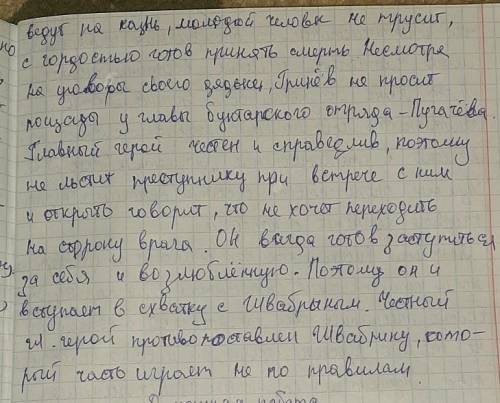 ведут на казнь, молодой человек не трусит,
с гордостью готов принять смерть. Несмотря
на уговоры своего дядьки, Гринёв не просит
пощады у главы бунтарского отряда - Пугачёва.
Главный герой честен и справедлив, поэтому
не льстит преступнику при встрече с ним
и открыто говорит, что не хочет переходить
на сторону врага. Он всегда готов заступиться
за себя и возлюблённую. Поэтому он и
вступает в схватку с Швабрыным. Честный
гл. герой противопоставлен Швабрину, кото-
рый часто играет не по правилам.
работа